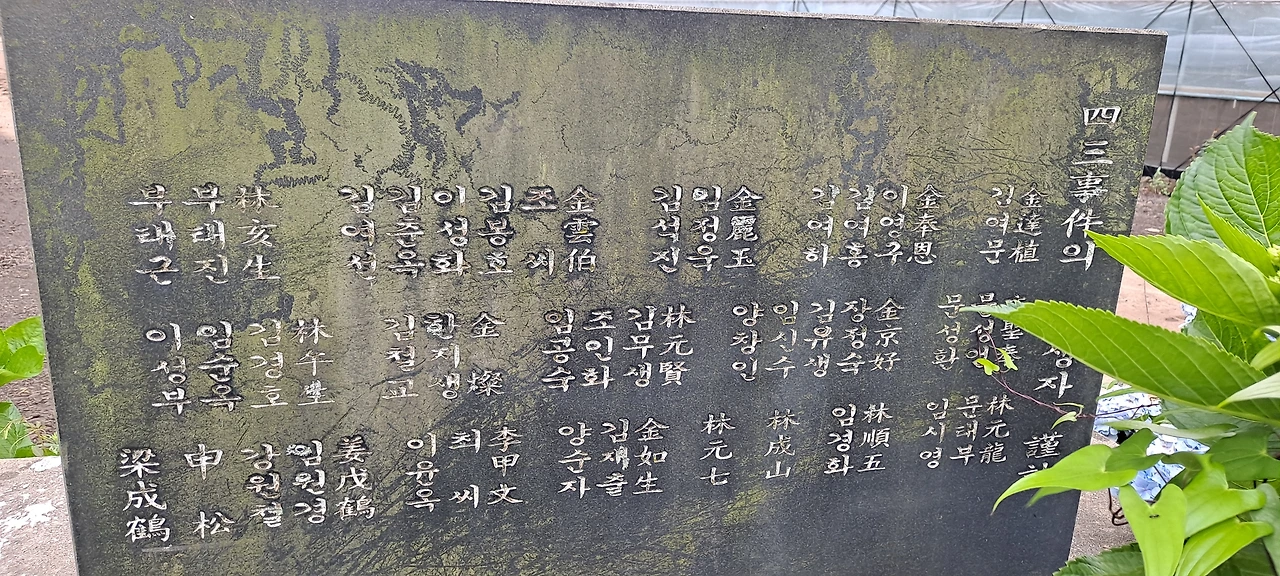 四三事件의 생자 謹
金達植
김여문
金奉恩
이영구
김여홍
김여하
金麗玉
임정옥
김석진
金雲伯
조 씨
김봉호
이성화
김춘옥
김여선
林亥生
부태진
부태근
문성환
金京好
장정숙
김유생
임시수
양창인
林元賢
김무생
조인화
임공숙
金 燦
한지생
김철교
林午生
김경호
임순옥
이성부
林元龍
문태부
임시영
林順五
임경화
林成山
林元七
金如生
김재출
양순자
李甲文
최 씨
이유옥
姜戊鶴
임원경
강원절
申 松
梁成鶴